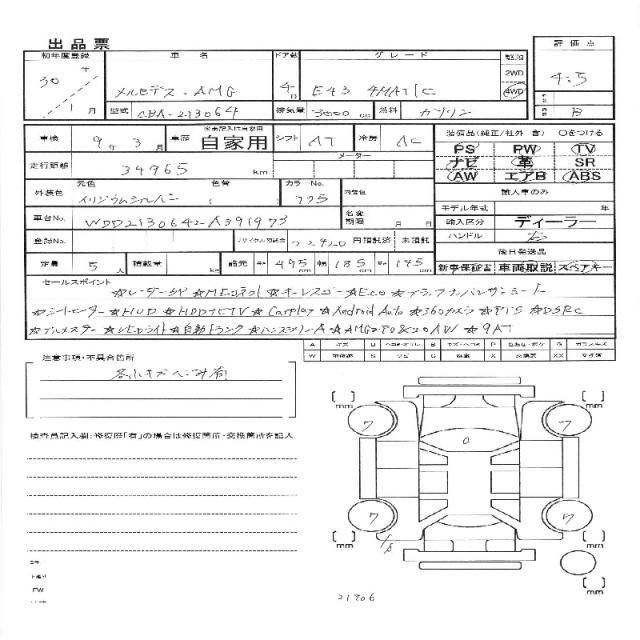 出品票
初年度登録 車名 ドア数 グレード 駆動 評価点
30年 メルセデス・AMG 4D E43 4MATIC 2WD 4WD 4.5
1月 型式 CBA-213064 排気量 3000cc 燃料 ガソリン B
車検 9年3月 車歴 自家用 シフト AT 冷房 AC 装備品(純正/社外 含) Oをつける
PS PW TV
走行距離 34965 km メーター ナビ 革 SR
AW エアB ABS
外装色 元色 色替 カラーNo. 内装色 輸入車のみ
イリジウムシルバー 775 モデル年式 年
車台No. WDD2130642-A391973 名変期限 月 日 輸入区分 ディーラー
登録No. リサイクル預託金 22920 円預託済 未預託 ハンドル 右
後日発送品
定員 5人 積載量 kg 諸元 長さ 495cm 幅 185cm 高さ 145cm 新車保証書 車両取説 スペアキー
セールスポイント
☆レーダーSP ☆MEコネクト ☆キーレスゴー ☆Eco ☆ブラックナッパレザーシート
☆シートヒーター ☆HUD ☆HDDナビTV ☆Carplay ☆Android Auto ☆360カメラ ☆PTS ☆DSRC
☆ブルメスター ☆LEDライト ☆自動トランク ☆ハンズフリーA ☆AMGエアロ&20AW ☆9AT
注意事項・不具合箇所
各小キズヘこみ有
検査員記入欄:修復歴「有」の場合は修復箇所・交換箇所を記入
mm mm
7 7
0
7 7
mm mm
21906